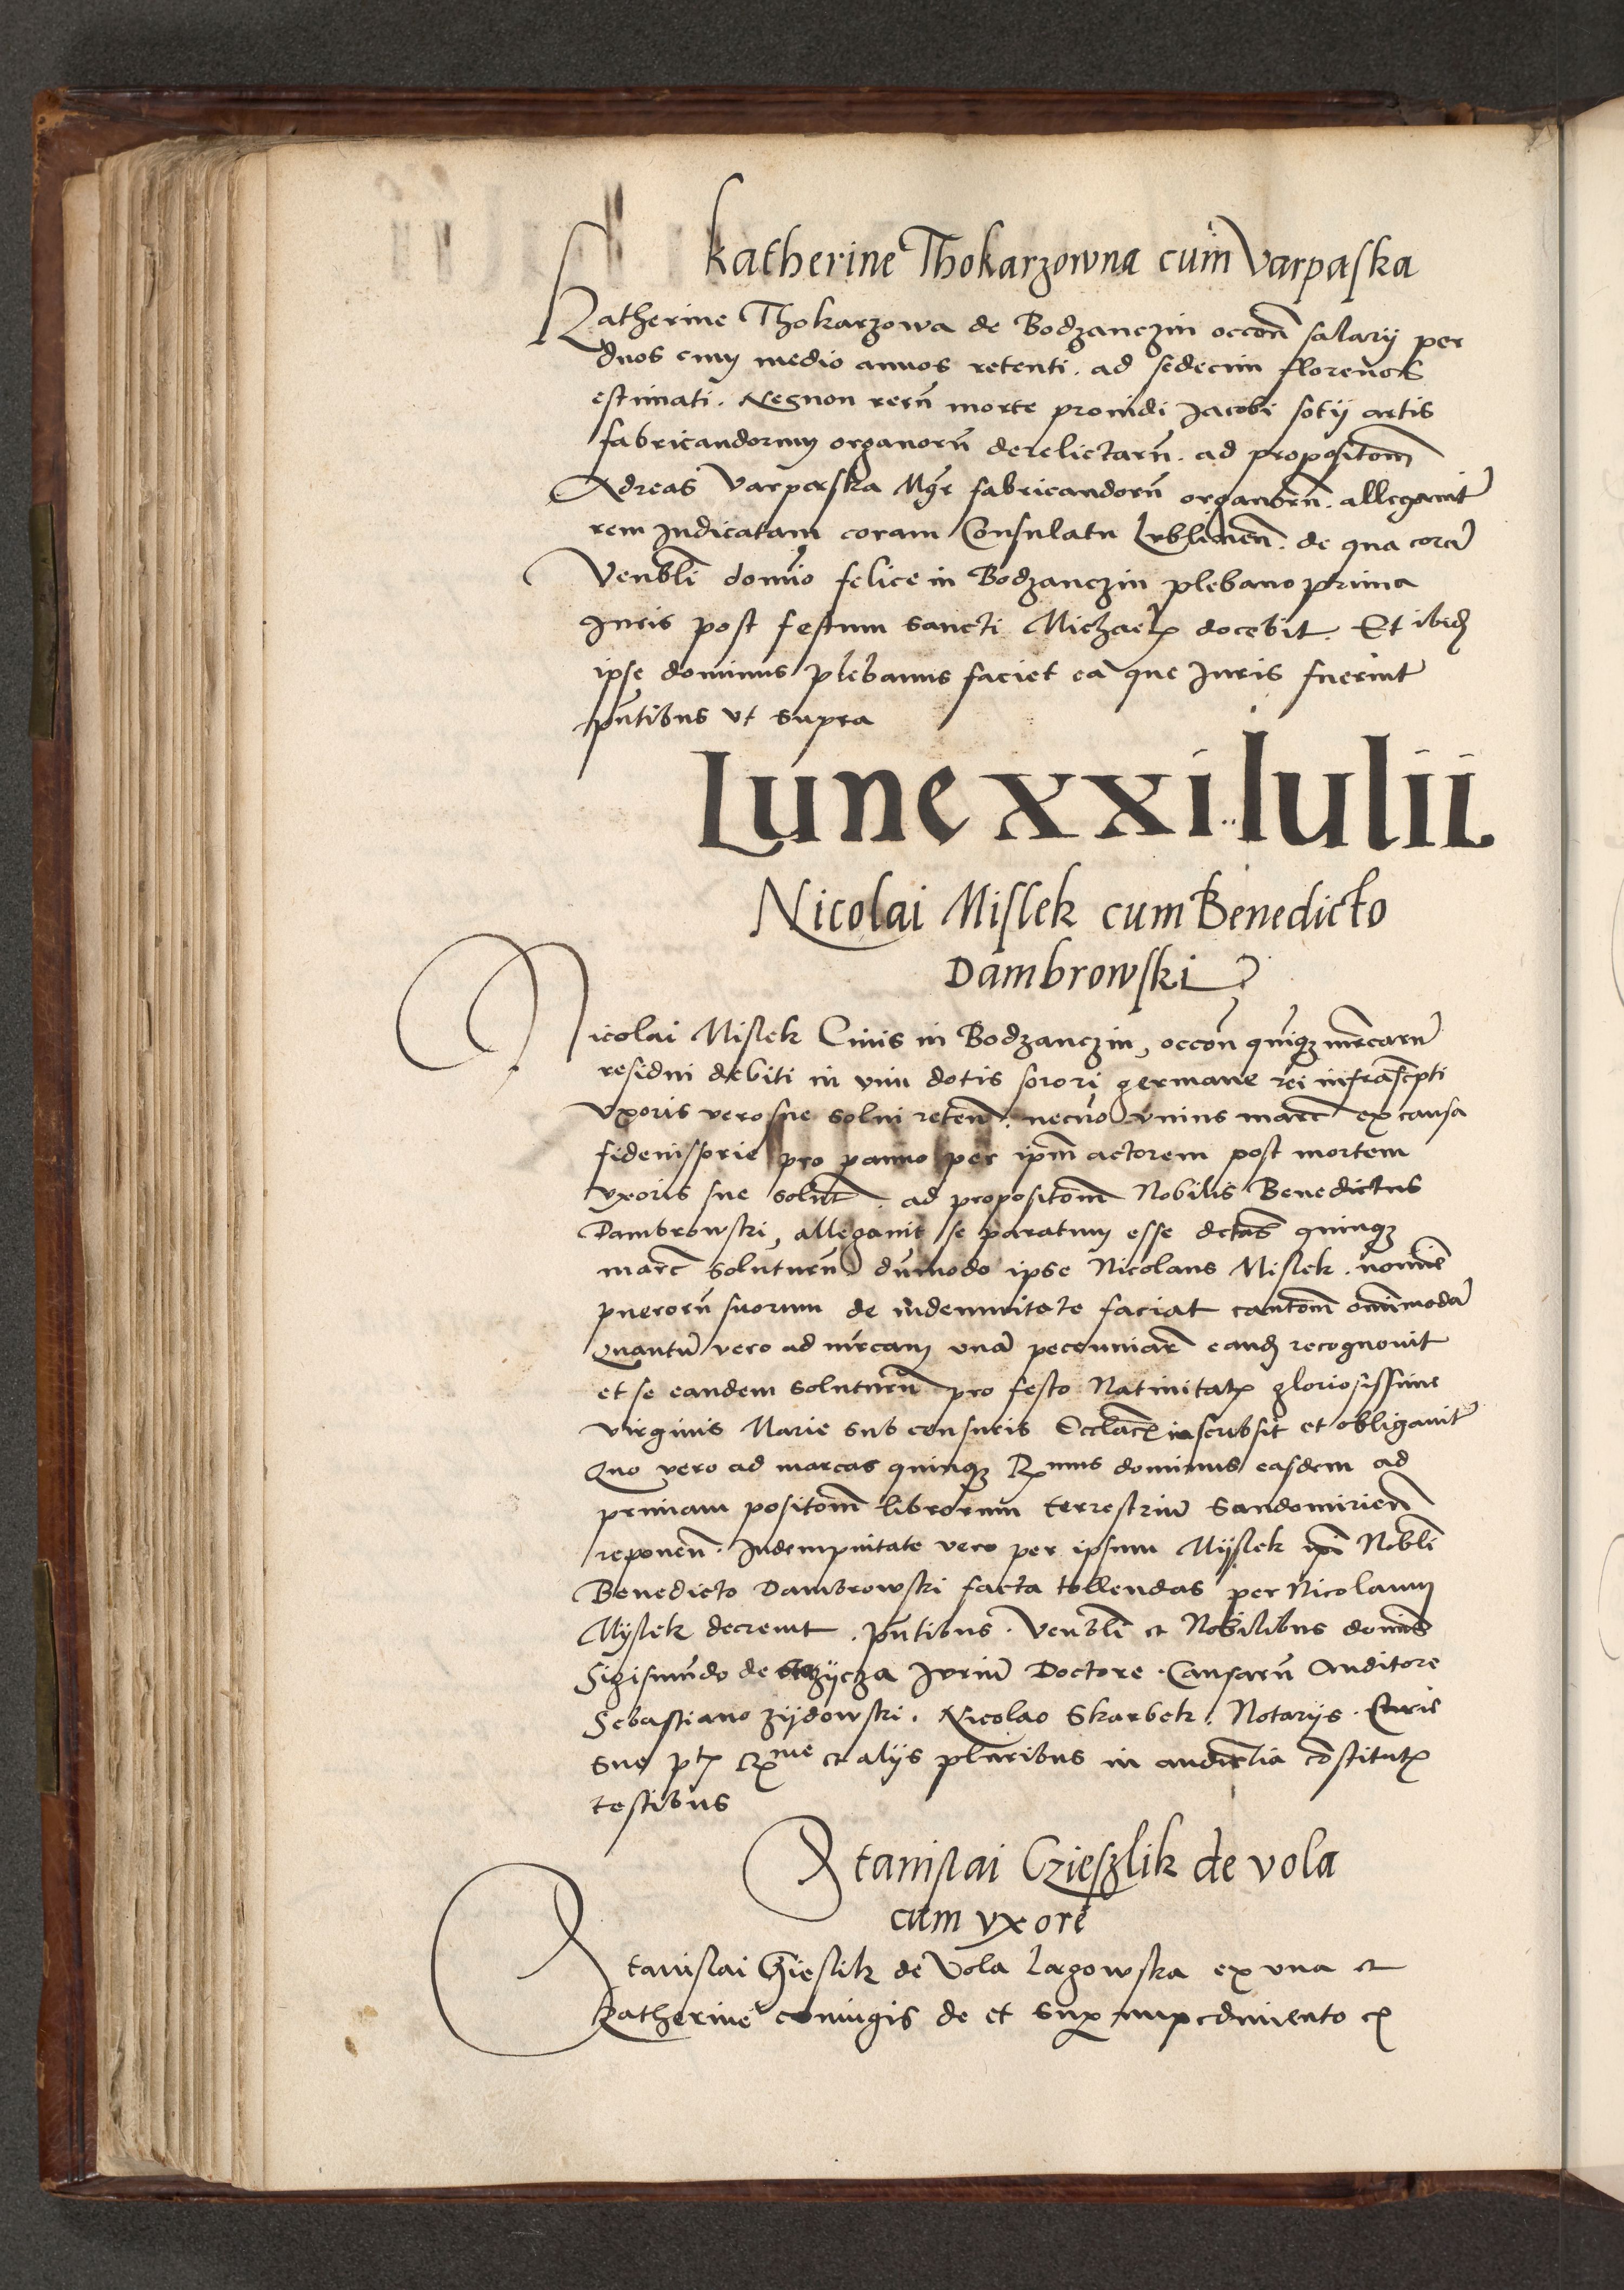 Katherine Thokarzowna cum Varpaska
Katherine Thokarzowa de Bodzanczin occōn salarij per
duos cum medio annos retenti. ad sedecim florenos
estimati. Negnon rerū morte prouidi Jacobi sotij artis
fabricandorum organorū derelictarū. ad propositom̄
Adreas Varpaska Mgr̄ fabricandorū organorū. allegauit
rem Judicatam coram Consulatu Lublinen̄. de qua corā
Venbli domīo felice in Bodzanczin plebano prima
Juris post festum sancti Michaelis docebit. Et ibid
ipse dominus plebanus faciet ea que Juris fuerint
pn̄tibus vt supra
Lune xxi Iulii
Nicolai Mislek cum Benedicto
Dambrowski
Nicolai Mislek Ciuis in Bodzanczin, occōn quiqz mrcarū
residui debiti in vim dotis sorori germane rei infrascpti
Vxoris vero sue solui reten̄. necno vnius marc̄ ex causa
fideiussorie pro panno per ipm̄ actorem post mortem
vxoris sue solut̄. ad propositom̄ Nobilis Benedictus
Dambrowski, allegauit se paratum esse dctas quinqz
marc̄ soluturū dummodo ipse Nicolaus Mislek. nomīe
puerorū suorum de indemnitate faciat cautom̄ omīmodā
Quantū vero ad mrcam vnā pecuniar̄ eand recognouit
et se eandem soluturū pro festo Natiuitatis gloriosissime
virginis Marie sub censuris Ecclāc inscribsit et obligauit
Quo vero ad marcas quinqz Rmus dominus easdem ad
primam positom̄ librorum terrestriū Sandomirien̄
reponen̄. Indempnitate vero per ipsum Myslek ipī Nobli
Benedicto Dambrowski facta tollendas per Nicolaum
Myslek decreuit. pn̄tibus. Venbli et Nobilibus domīs
Sigismundo de Stezijcza Juriū Doctore. Causarū Auditore
Sebastiano Zijdowski. Nicolao Skarbek. Notarijs. Curie
sue pt Rme et alijs pluribus in audiētia cōstitutis
testibus
Stanislai Czieszlik de vola
cum vxore
Stanislai Czieslik de Vola Lagowska ex vna et
Katherine coniugis de et sup impedimento